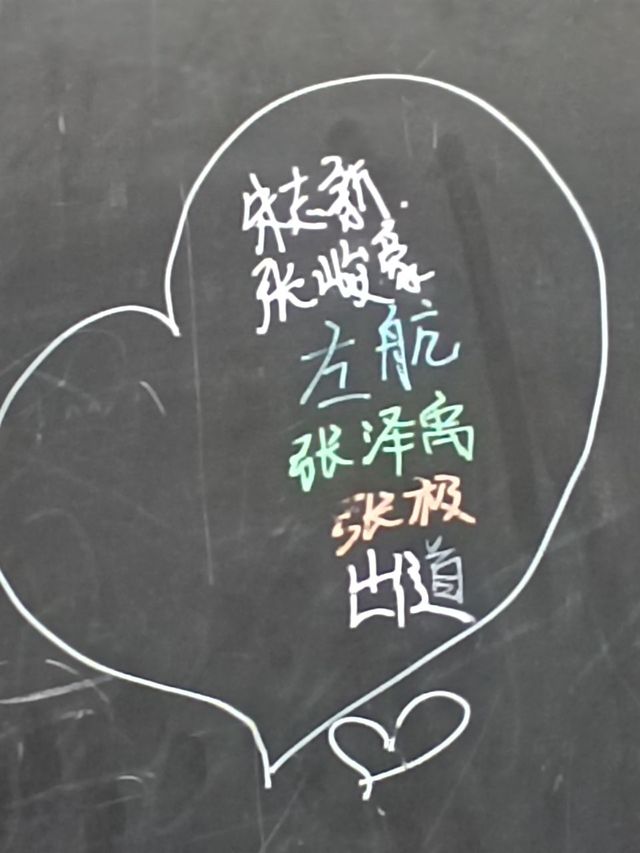 朱志新.
张峻豪
左航
张泽禹
张极
出道